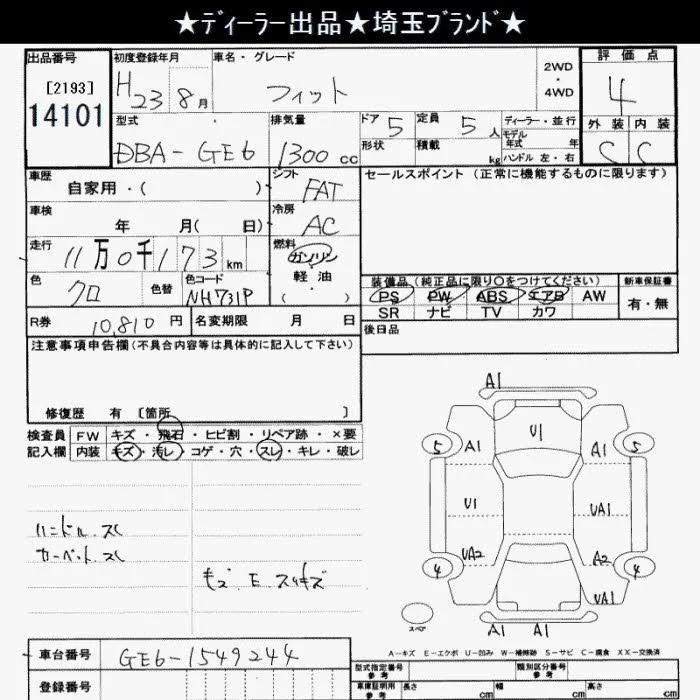 ★ディーラー出品★埼玉ブランド★
出品番号
[2193]
14101
初度登録年月
H23 8月
車名・グレード
フィット
2WD
・
4WD
評価点
4
外装 内装
C C
型式
DBA-GE6
排気量
1300 cc
ドア 5
定員 5 人
形状
積載 kg
ディーラー・並行
モデル年式 年
ハンドル 左・右
車歴
自家用・( )
シフト
FAT
セールスポイント(正常に機能するものに限ります)
車検
年 月( 日)
冷房
AC
走行
11万0千173km
燃料
ガソリン
軽油
( )
色
クロ
色替
色コード
NH731P
装備品(純正品に限り○をつけてください)
PS PW ABS エアB AW
SR ナビ TV カワ
新車保証書
有・無
R券 10,810円
名変期限 月 日
後日品
注意事項申告欄(不具合内容等は具体的に記入して下さい)
修復歴 有 [箇所 ]
検査員記入欄
FW キズ・飛石・ヒビ割・リペア跡・×要
内装 キズ・汚レ・コゲ・穴・スレ・キレ・破レ
ハンドル スレ
カーペット スレ
キズ E スリキズ
A1
U1
5 A1 A1 5
U1 UA1
UA2 A2
4 4
UA1
スペア
A1 A1
A-キズ E-エクボ U-凹み W-補修跡 S-サビ C-腐食 XX-交換済
車台番号
GE6-1549244
登録番号
型式指定番号
参考
類別区分番号
参考
車庫証明用
参考
長さ cm
幅 cm
高さ cm